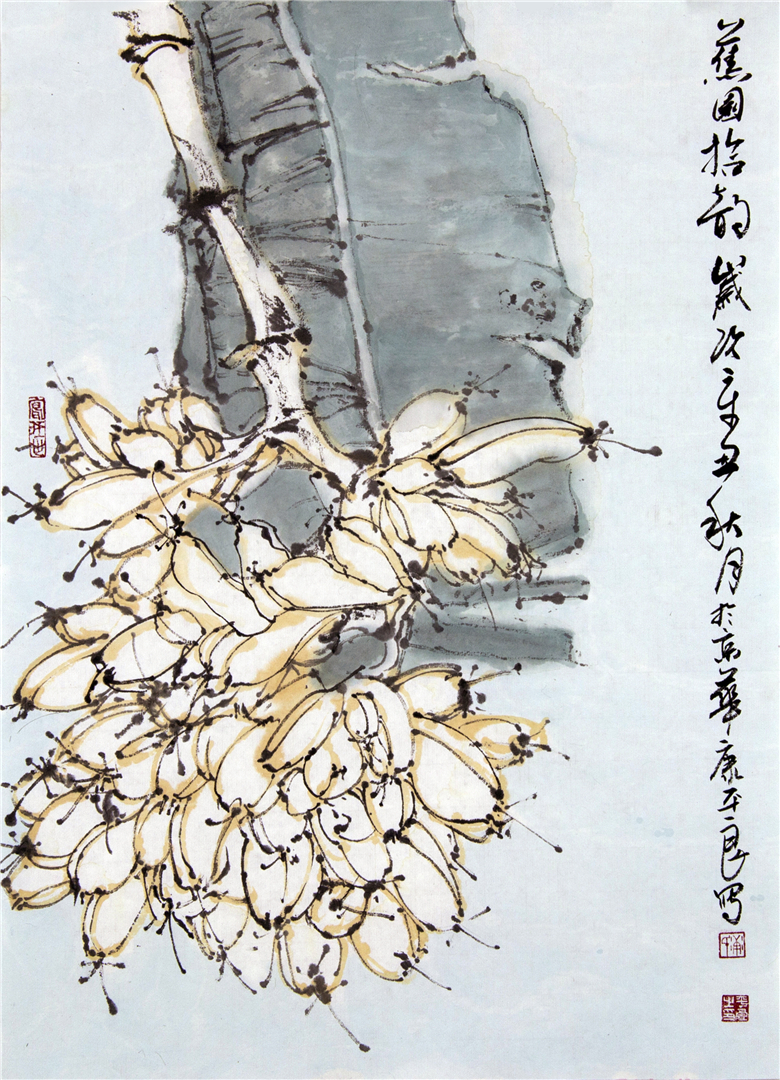 蕉園拾韵 歲次辛丑秋月於京華康平良寫